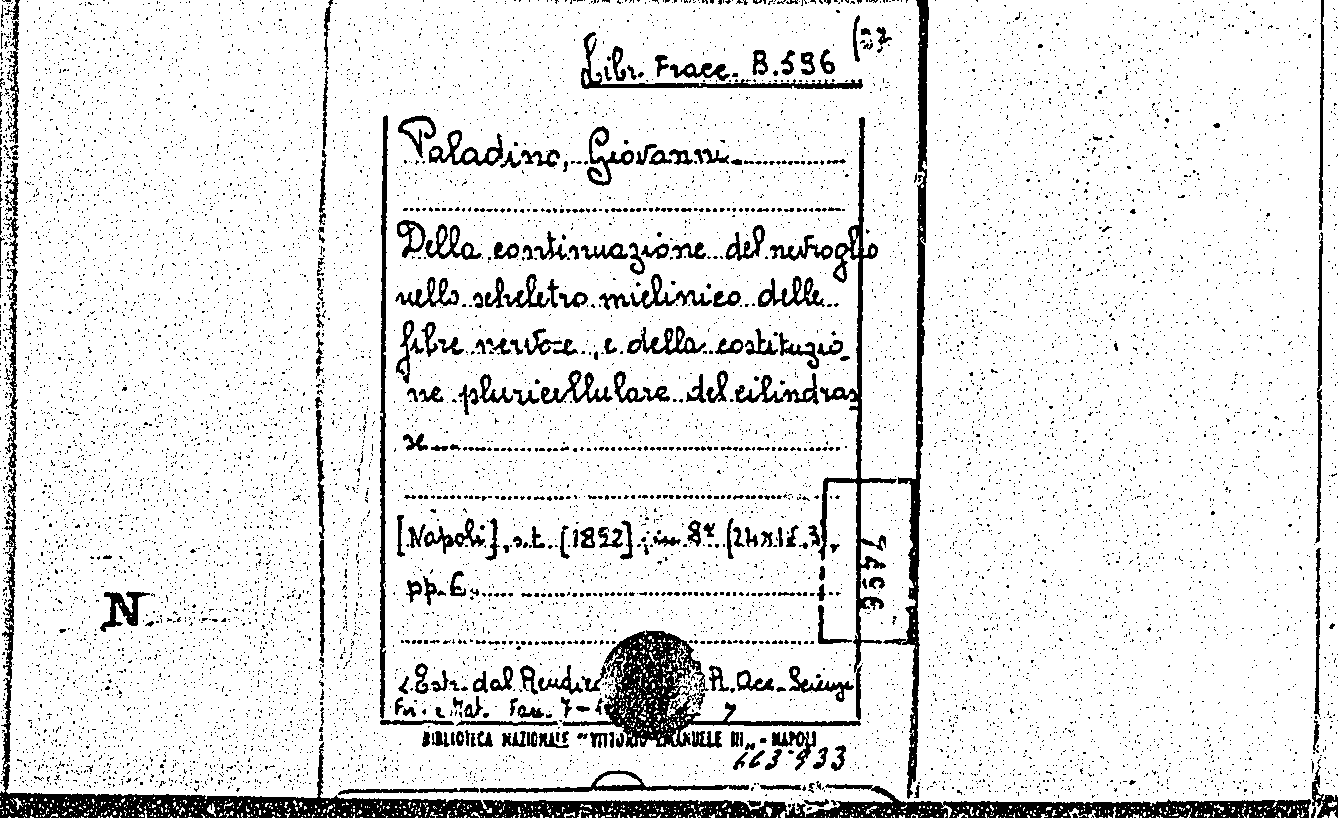 Libr. Fracc. B.596 (27
Paladino, Giovanni
Della continuazione del nevroglio
nello scheletro mielinico delle
fibre nervose, e della costituzio_
ne pluricellulare del cilindras
se
[Napoli], s.t. [1892]; in 8°
pp. 6
7496
N
<Estr. dal Rendic R. Acc. Scienze
Fis. e Mat. Fasc. 7
BIBLIOTECA NAZIONALE "VITTORIO EMANUELE III" - NAPOLI
663933